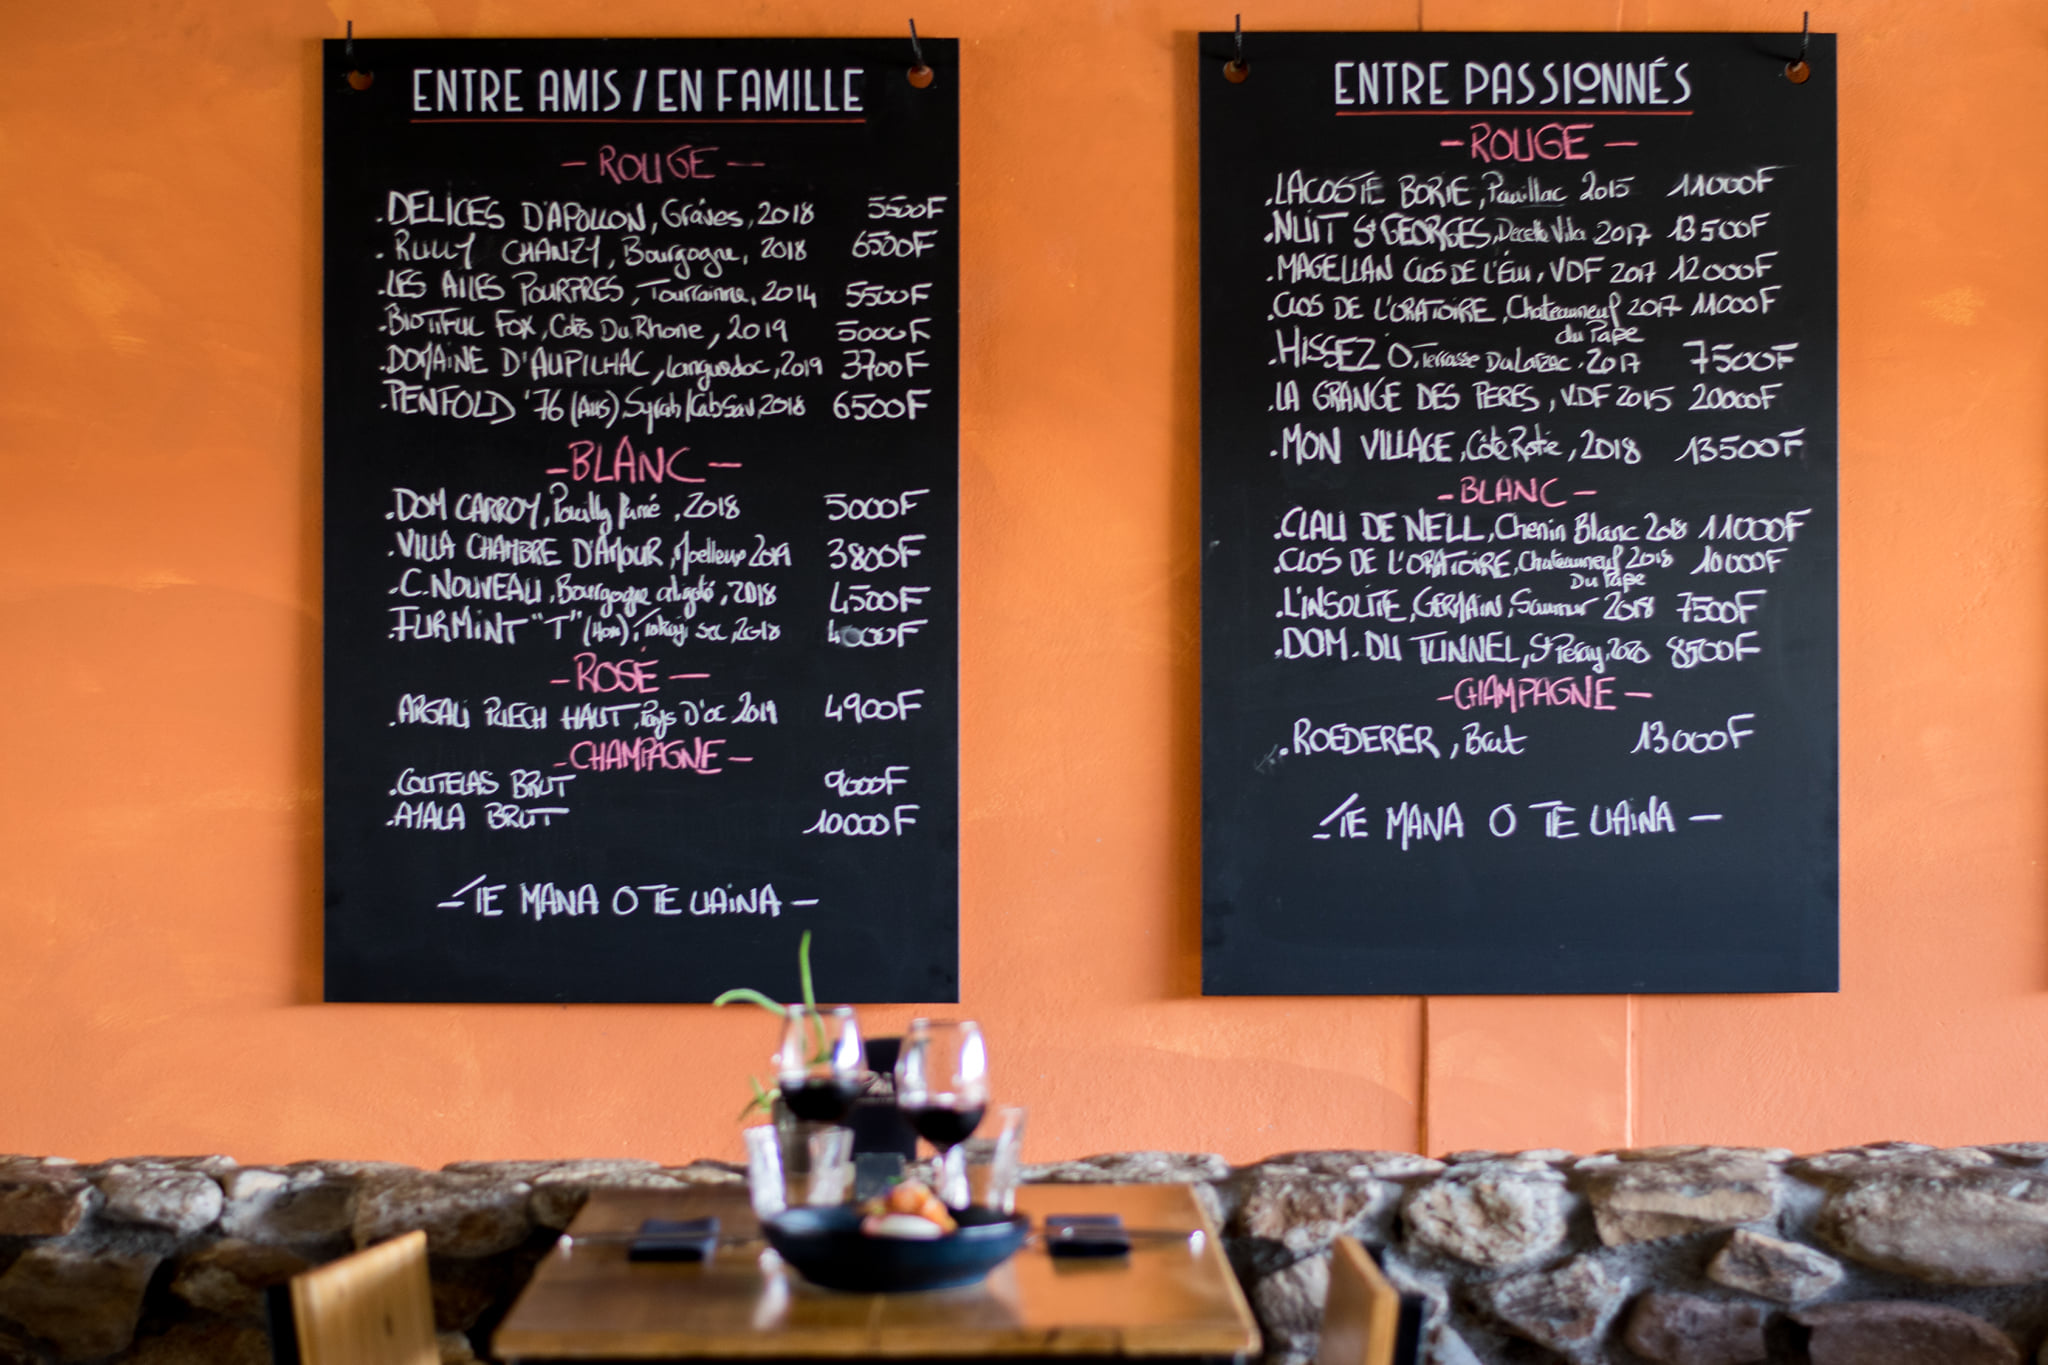 ENTRE AMIS / EN FAMILLE
- ROUGE -
.DELICES D'APOLLON, Graves, 2018 5500F
.RULLY CHANZY, Bourgogne, 2018 6500F
.LES AILES POURPRES, Tourrainne, 2014 5500F
.BIOTIFUL FOX, Côtes Du Rhone, 2019 5000F
.DOMAINE D'AUPILHAC, Languedoc, 2019 3700F
.PENFOLD '76 (Aus), Syrah/Cab Sav, 2018 6500F
- BLANC -
.DOM CARROY, Pouilly fumé, 2018 5000F
.VILLA CHAMBRE D'AMOUR, Moelleux 2019 3800F
.C. NOUVEAU, Bourgogne aligoté, 2018 4500F
.FURMINT "T" (Hon), Tokaji sec, 2018 4000F
- ROSÉ -
.ARGALI PUECH HAUT, Pays D'oc 2019 4900F
- CHAMPAGNE -
.COUTELAS BRUT 9000F
.AYALA BRUT 10000F
- TE MANA O TE UAINA -
ENTRE PASSIONNÉS
- ROUGE -
.LACOSTE BORIE, Pauillac 2015 11000F
.NUIT St GEORGES, Decelle Villa 2017 13500F
.MAGELLAN CLOS DE L'ÉLU, VDF 2017 12000F
.CLOS DE L'ORATOIRE, Chateauneuf 2017 11000F
du Pape
.HISSEZ O, Terrasse Du Larzac, 2017 7500F
.LA GRANGE DES PERES, VDF 2015 20000F
.MON VILLAGE, Côte Rotie, 2018 13500F
- BLANC -
.CLAU DE NELL, Chenin Blanc 2018 11000F
.CLOS DE L'ORATOIRE, Chateauneuf 2018 10000F
Du Pape
.L'INSOLITE, GERMAIN, Saumur 2018 7500F
.DOM. DU TUNNEL, St Peray, 2020 8500F
- CHAMPAGNE -
.ROEDERER, Brut 13000F
- TE MANA O TE UAINA -